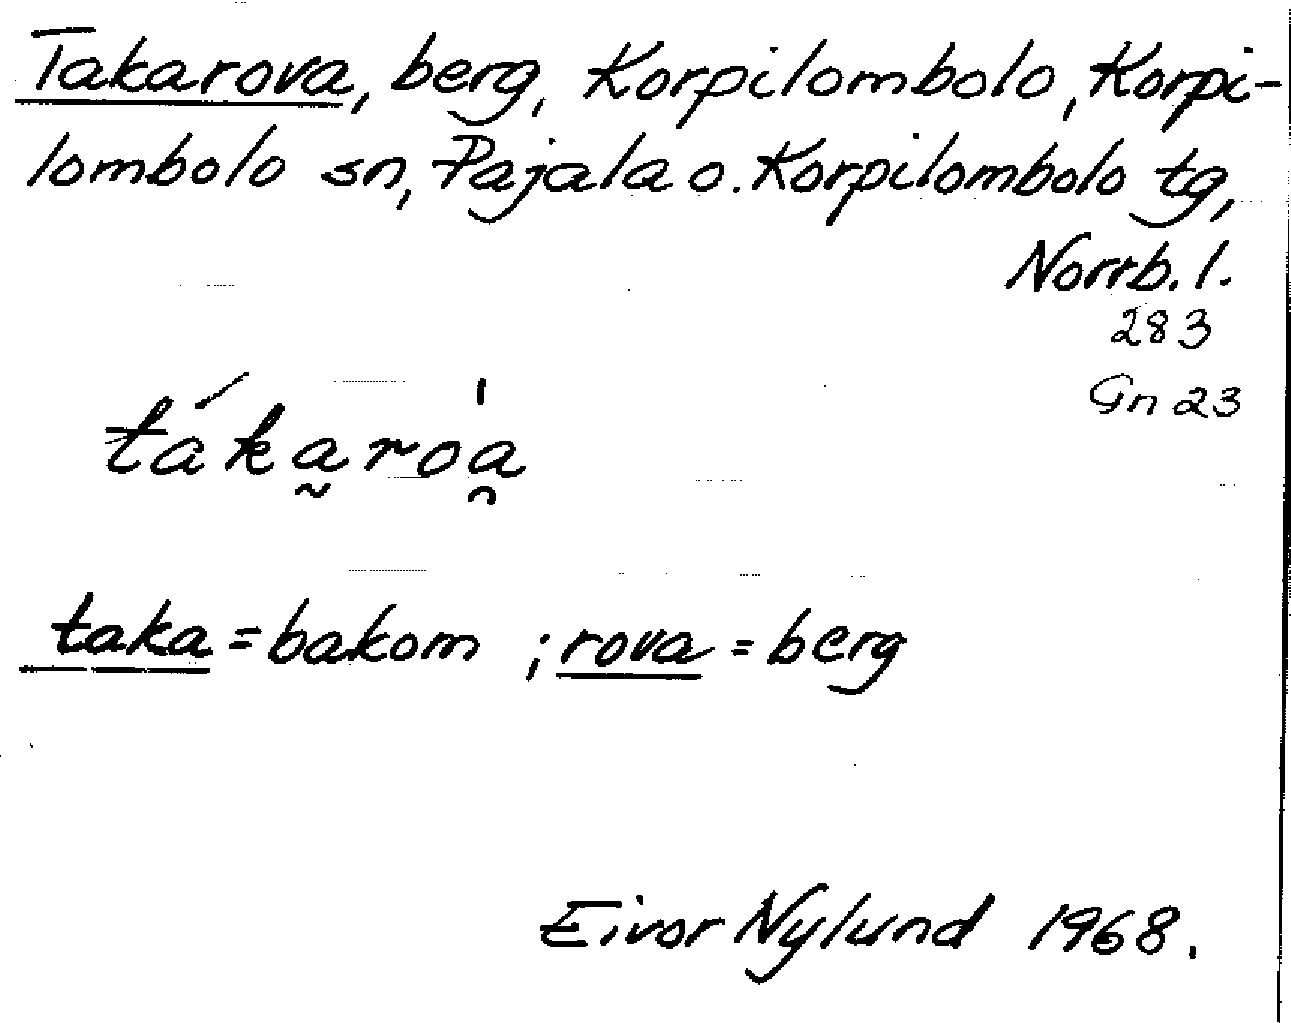 Takarova, berg, Korpilombolo, Korpi-
lombolo sn, Pajala o. Korpilombolo tg,
Norrb. l.
283
Gn 23
tákа̰roa̯
taka = bakom ; rova = berg
Eivor Nylund 1968.